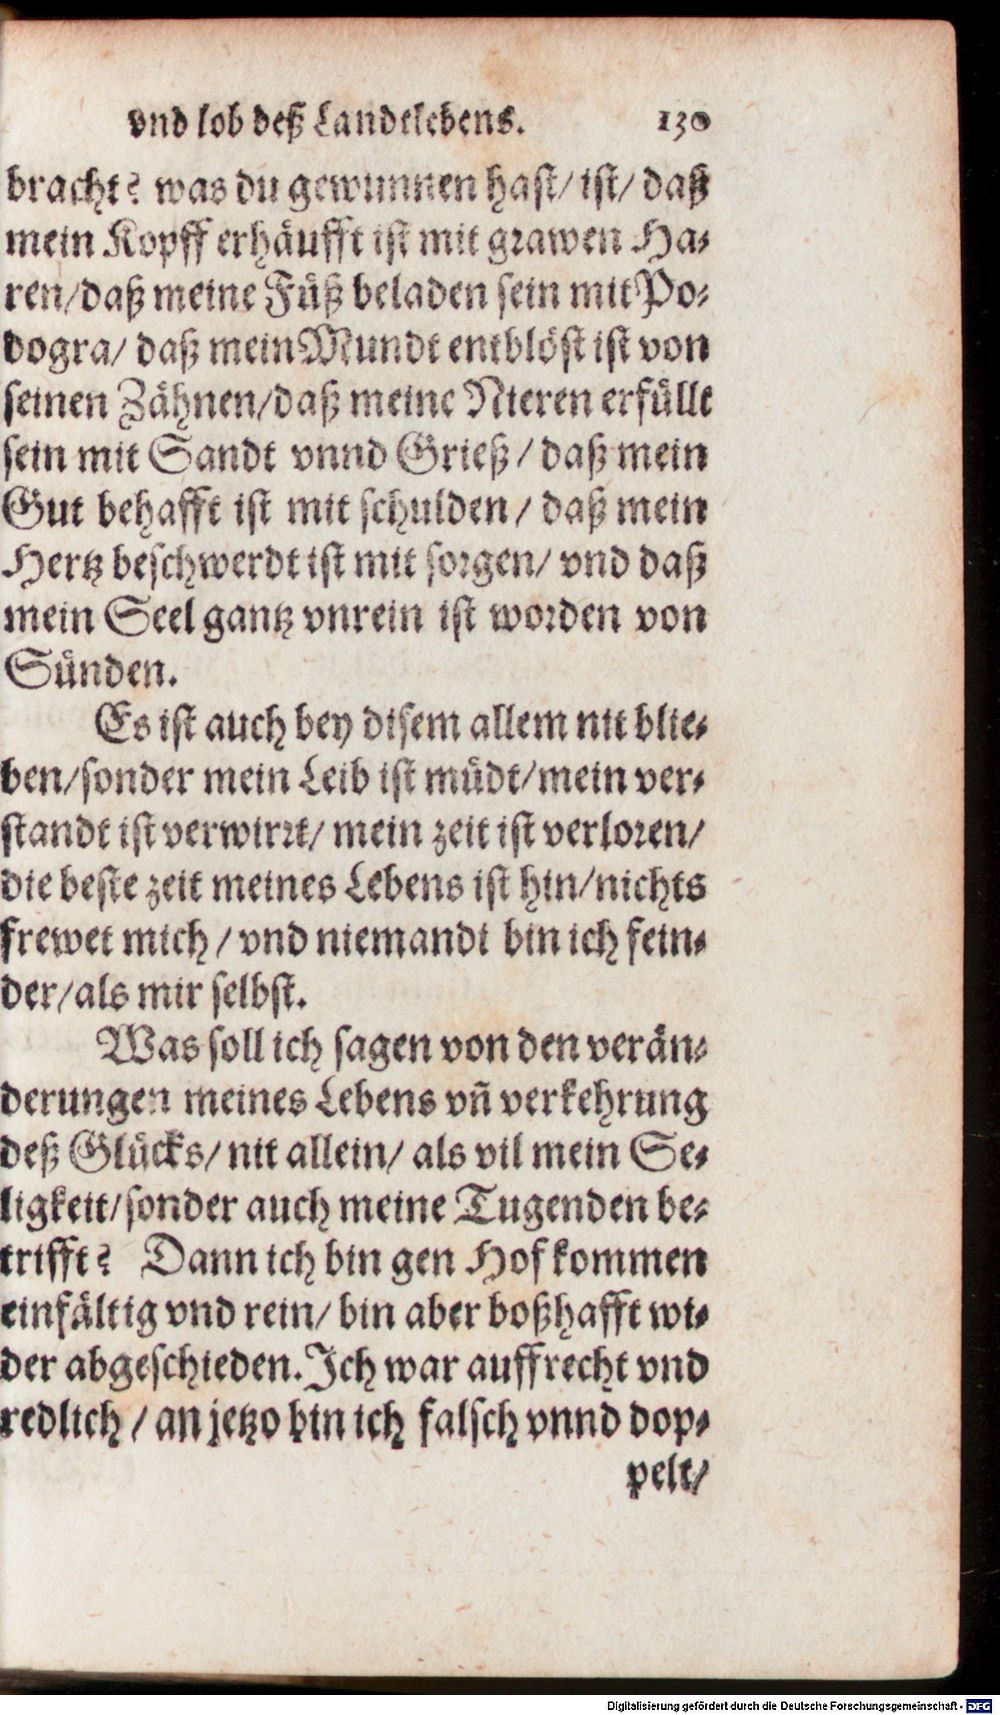 vnd lob deß Landtlebens. 130
bracht? was du gewunnen hast/ ist/ daß
mein Kopff erhäufft ist mit grawen Ha-
ren/daß meine Füß beladen sein mit Po-
dogra/ daß mein Mundt entblöst ist von
seinen Zähnen/daß meine Nieren erfüllt
sein mit Sandt vnnd Grieß/ daß mein
Gut behafft ist mit schulden/ daß mein
Hertz beschwerdt ist mit sorgen/ vnd daß
mein Seel gantz vnrein ist worden von
Sünden.
Es ist auch bey disem allem nit blie-
ben/sonder mein Leib ist müdt/mein ver-
standt ist verwirrt/ mein zeit ist verloren/
die beste zeit meines Lebens ist hin/nichts
frewet mich/ vnd niemandt bin ich fein-
der/als mir selbst.
Was soll ich sagen von den verän-
derungen meines Lebens vñ verkehrung
deß Glücks/ nit allein/ als vil mein Se-
ligkeit/sonder auch meine Tugenden be-
trifft? Dann ich bin gen Hof kommen
einfältig vnd rein/ bin aber boßhafft wi-
der abgeschieden. Ich war auffrecht vnd
redlich/ an jetzo bin ich falsch vnnd dop-
pelt/
Digitalisierung gefördert durch die Deutsche Forschungsgemeinschaft - DFG